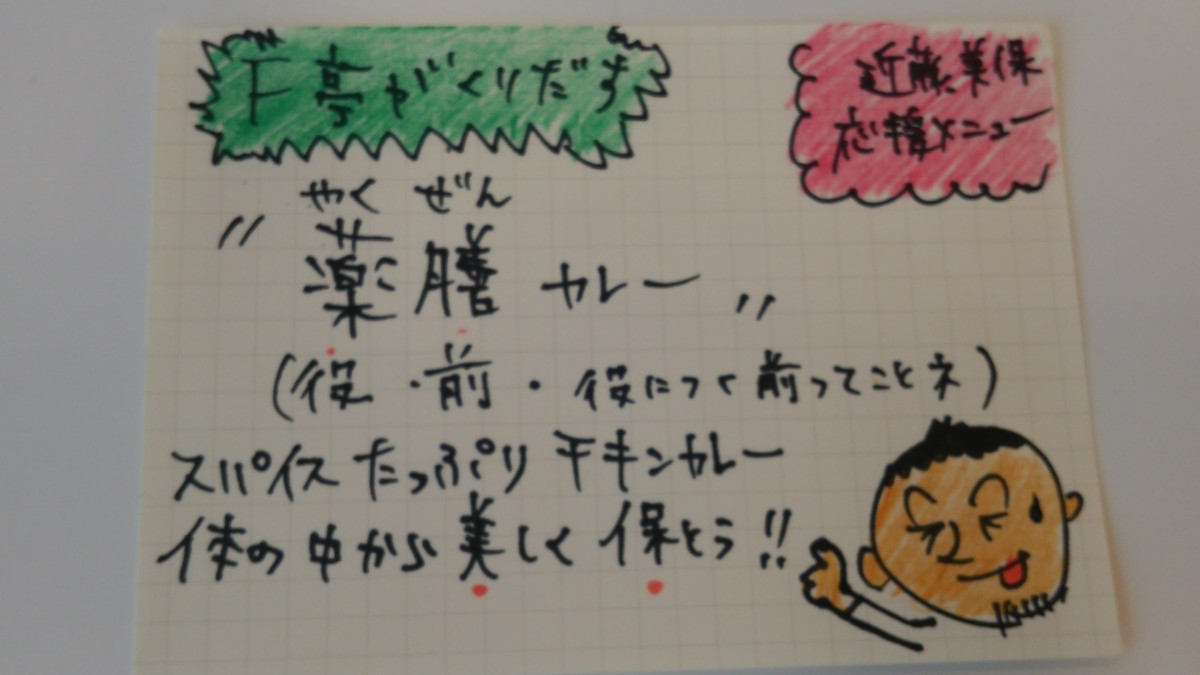 下亭がくりだす
近藤美保
応援メニュー
やくぜん
"薬膳カレー"
(役・前・役につく前ってことネ)
スパイスたっぷりチキンカレー
体の中から美しく保とう!!